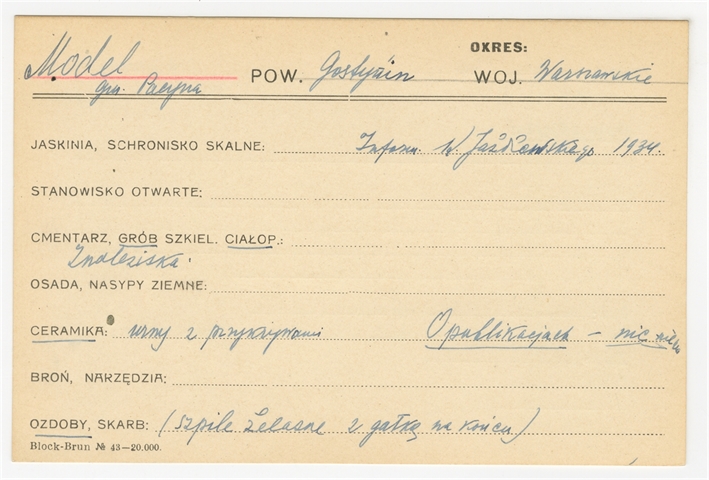 OKRES:
Model POW. Gostynin WOJ. Warszawskie
gm. Pacyna
JASKINIA, SCHRONISKO SKALNE: Inform. W Jażdżewskiego 1934.
STANOWISKO OTWARTE:
CMENTARZ, GRÓB SZKIEL. CIAŁOP.:
Znaleziska.
OSADA, NASYPY ZIEMNE:
CERAMIKA: urny z przykrywami O publikacjach – nic
BROŃ, NARZĘDZIA:
OZDOBY, SKARB: (szpile żelazne z gałką na końcu)
Block-Brun № 43—20.000.